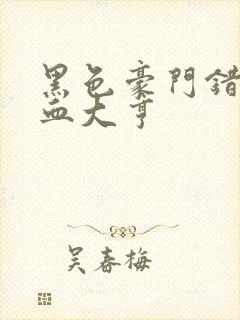 黑色豪門錯
血大亨
吴春梅